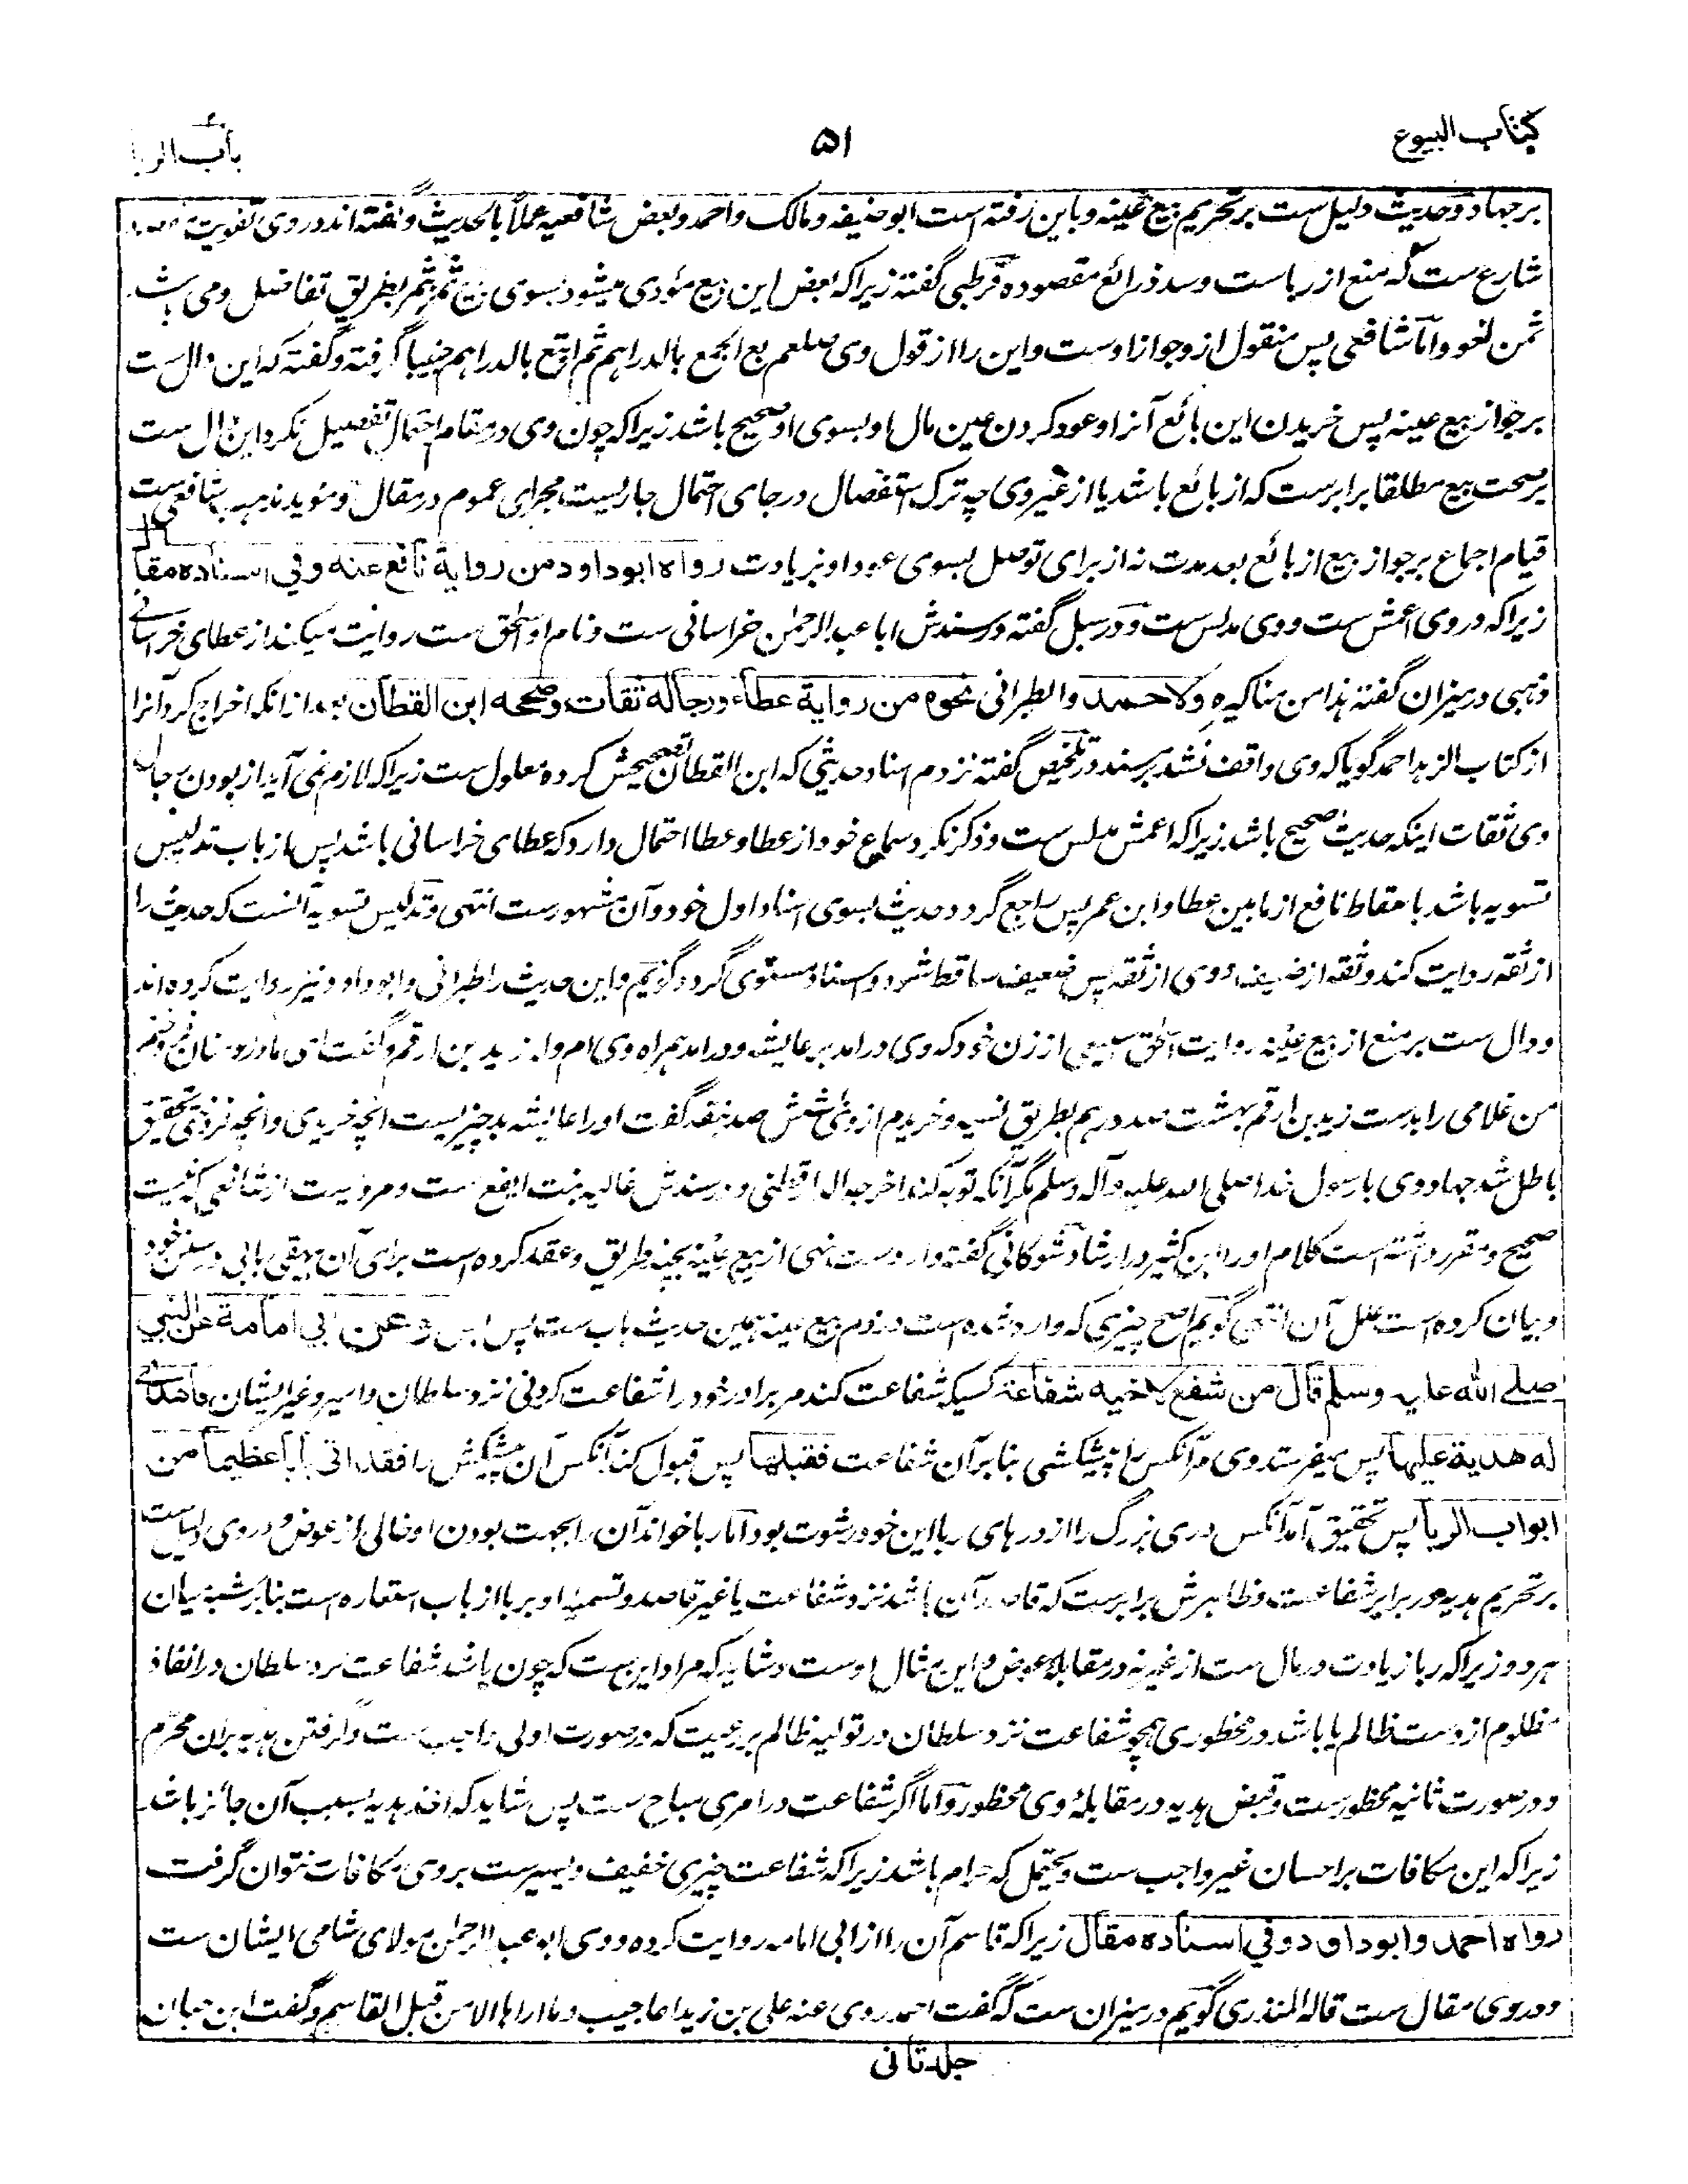 کتاب البیوع
۵۱
باب الربا
برجهاد و حدیث دلیل ست بر تحریم بیع عینه و باین رفته است ابو حنیفه و مالک و احمد و بعض شافعیه عملاً بالحدیث و گفته اند در وی تفویت
شارع ست که منع از ربا ست و سد ذرائع مقصوده قرطبی گفته زیراکه بعض این بیع مؤدی میشود بسوی بیع تمر بتمر بطریق تفاضل و می باشد
ثمن لغو و اما شافعی پس منقول ازو جواز اوست و این را از قول وی صلعم بع الجمع بالدراهم ثم ابتع بالدراهم جنیبا گرفته و گفته که این دال ست
بر جواز بیع عینه پس خریدن این بائع آنرا و عود کردن عین مال او بسوی او صحیح باشد زیراکه چون وی در مقام احتمال تفصیل نکرد این دال ست
بر صحت بیع مطلقا برابرست که از بائع باشد یا از غیر وی چه ترک استفصال در جای احتمال جاریست مجرای عموم در مقال و مؤید مذهب شافعی ست
قیام اجماع بر جواز بیع از بائع بعد مدت نه از برای توصل بسوی عود او بزیادت رواه ابوداود من روایة نافع عنه وفی اسناده مقال
زیراکه در وی اعمش ست و وی مدلس ست و در سبل گفته در سندش ابا عبد الرحمن خراسانی ست و نام او اسحق ست روایت میکند از عطای خراسانی
ذهبی در میزان گفته هذا من مناکیره ولاحمد والطبرانی نحوه من روایة عطاء ورجاله ثقات وصححه ابن القطان بعد از انکه اخراج کرد آنرا
از کتاب الزهد احمد گویا که وی واقف نشد بر سند و در تلخیص گفته نزدم اسناد حدیثی که ابن القطان تصحیحش کرده معلول ست زیراکه لازم نمی آید از بودن رجال
وی ثقات اینکه حدیث صحیح باشد زیراکه اعمش مدلس ست و ذکر نکرد سماع خود از عطا و عطا احتمال دارد که عطای خراسانی باشد پس از باب تدلیس
تسویه باشد باسقاط نافع از مابین عطا و ابن عمر پس راجع گردد حدیث بسوی اسناد اول خود و آن مشهورست انتهی و تدلیس تسویه آنست که حدیث را
از ثقه روایت کند و ثقه از ضعیف و وی از ثقه پس ضعیف ساقط شود و اسناد مستوی گردد گویم و این حدیث را طبرانی و ابوداود نیز روایت کرده اند
و دال ست بر منع از بیع عینه روایت اسحق سبیعی از زن خود که وی درامد بر عایشه و درامد همراه وی ام ولد زید بن ارقم و گفت ای مادر مومنان فروختم
من غلامی را بدست زید بن ارقم بهشت صد درهم بطریق نسیه و خریدم از وی بشش صد نقد گفت او را عایشه بد چیزیست انچه خریدی و انچه فروختی تحقیق
باطل شد جهاد وی با رسول خدا صلی الله علیه و آله وسلم مگر آنکه توبه کند اخرجه الدارقطنی و در سندش عالیه بنت ایفع ست و مرویست از شافعی که نیست
صحیح و مقرر داشته است کلام او را ابن کثیر در ارشاد شوکانی گفته وارد ست نهی از بیع عینه بچند طریق و عقد کرده است برای آن بیهقی بابی در سنن خود
و بیان کرده است علل آن انتهی گویم اصح چیزی که وارد شده است در ذم بیع عینه همین حدیث باب ست پس و بس وعن ابی امامة عن النبی
صلے الله علیه وسلم قال من شفع لاخیه شفاعة کسیکه شفاعت کند مر برادر خود را شفاعت کردنی نزد سلطان و امیر و غیر ایشان فاهدی
له هدیة علیها پس بفرستد وی مر آنکس را پیشکشی بنابر آن شفاعت فقبلها پس قبول کند آنکس آن پیشکش را فقد اتی بابا عظیما من
ابواب الربا پس تحقیق آمد آنکس دری بزرگ را از درهای ربا این خود رشوت بود اما ربا خواند آن بجهت بودن او خالی از عوض و در وی دلیل ست
بر تحریم هدیه در برابر شفاعت و ظاهرش برابرست که قاصد آن باشد نزد شفاعت یا غیر قاصد و تسمیهٔ او بربا از باب استعاره است بنابر شبه میان
هر دو زیراکه ربا زیادت در مال ست از غیر نه در مقابله عوض و این مثال اوست و شاید که مراد این ست که چون باشد شفاعت نزد سلطان در انقاذ
مظلوم از دست ظالم یا باشد در محظوری همچو شفاعت نزد سلطان در تولیه ظالم بر رعیت که در صورت اولی واجب ست و گرفتن هدیه بران محرم
و در صورت ثانیه محظورست و قبض هدیه در مقابلهٔ وی محظور و اما اگر شفاعت در امری مباح ست پس شاید که اخذ هدیه بسبب آن جائز باشد
زیراکه این مکافات بر احسان غیر واجب ست و یحتمل که حرام باشد زیراکه شفاعت چیزی خفیف و یسیرست بروی مکافات نتوان گرفت
رواه احمد وابوداود وفی اسناده مقال زیراکه قاسم آن را از ابی امامه روایت کرده و وی ابو عبد الرحمن مولای شامی ایشان ست
و در وی مقال ست قاله المنذری گویم در میزان ست که گفت احمد روی عنه علی بن زید اعاجیب و ما اراها الا من قبل القاسم و گفت ابن حبان
جلد ثانی